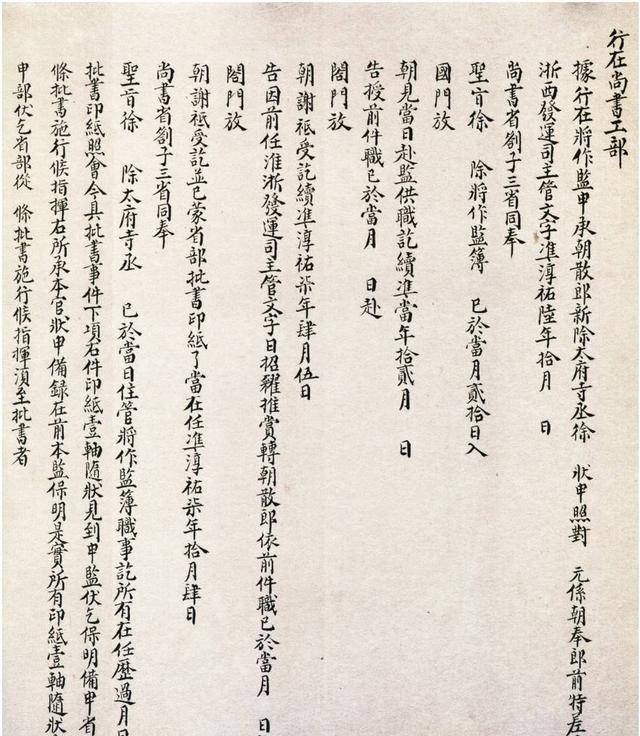 行在尚書工部
據行在將作監申承朝散郎新除太府寺丞徐 狀申照對 元係朝奉郎前特差
浙西發運司主管文字準淳祐陸年拾月 日
尚書省劄子三省同奉
聖旨徐 除將作監簿 已於當月貳拾日入
國門放
朝見當日赴監供職訖續準當年拾貳月 日
告授前件職已於當月 日赴
閤門放
朝謝祗受訖續準淳祐柒年肆月伍日
告因前任淮浙發運司主管文字日招糴推賞轉朝散郎依前件職已於當月 日
閤門放
朝謝祗受訖並已蒙省部批書印紙了當在任準淳祐柒年拾月肆日
尚書省劄子三省同奉
聖旨徐 除太府寺丞 已於當日住管將作監簿職事訖所有在任歷過月日
批書印紙照會今具批書事件下項右件印紙壹軸隨狀見到申監伏乞保明備申省
條批書施行候指揮右所承本官狀申備錄在前本監保明是實所有印紙壹軸隨狀
申部伏乞省部從 條批書施行候指揮須至批書者